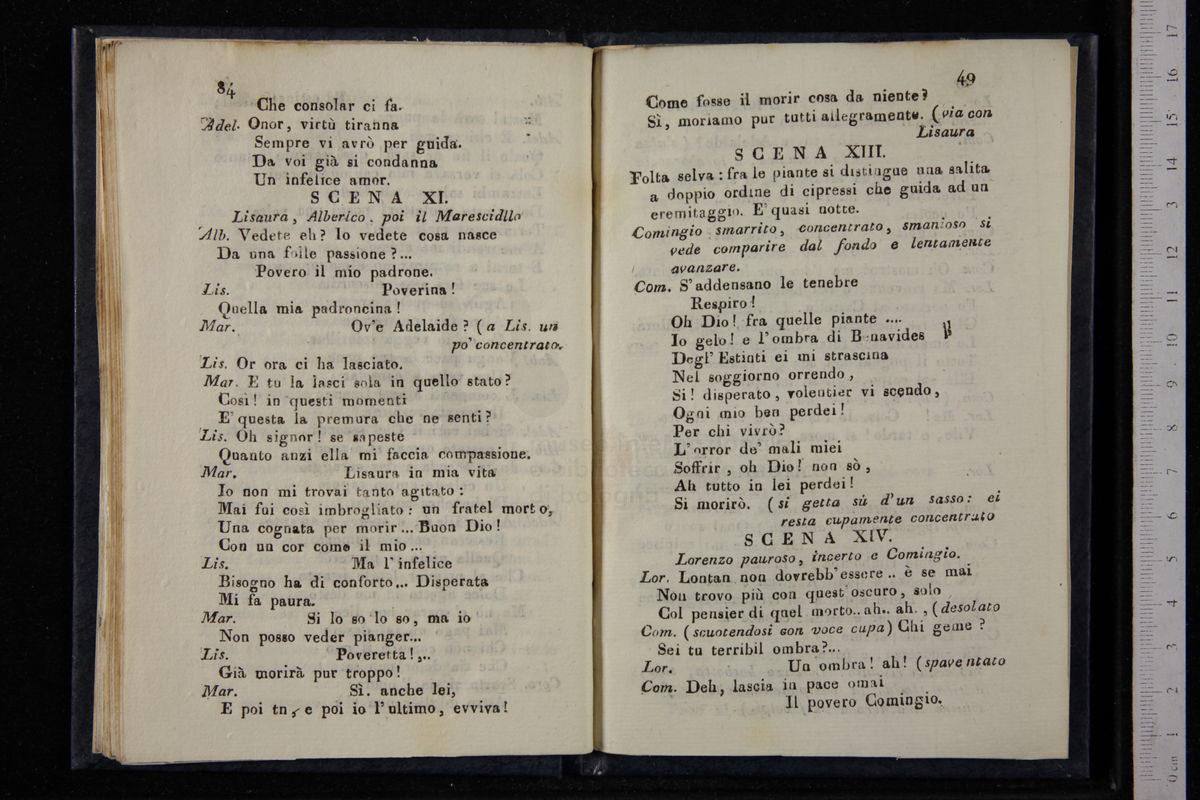 84
Che consolar ci fa.
Adel. Onor, virtù tiranna
Sempre vi avrò per guida.
Da voi già si condanna
Un infelice amor.
SCENA XI.
Lisaura, Alberico. poi il Marescidllo
Alb. Vedete eh? lo vedete cosa nasce
Da una folle passione?...
Povero il mio padrone.
Lis. Poverina!
Quella mia padroncina!
Mar. Ov'e Adelaide? (a Lis. un
po' concentrato.
Lis. Or ora ci ha lasciato.
Mar. E tu la lasci sola in quello stato?
Così! in questi momenti
E' questa la premura che ne senti?
Lis. Oh signor! se sapeste
Quanto anzi ella mi faccia compassione.
Mar. Lisaura in mia vita
Io non mi trovai tanto agitato:
Mai fui così imbrogliato: un fratel morto,
Una cognata per morir... Buon Dio!
Con un cor come il mio...
Lis. Ma l'infelice
Bisogno ha di conforto... Disperata
Mi fa paura.
Mar. Si lo so lo so, ma io
Non posso veder pianger...
Lis. Poveretta!,..
Già morirà pur troppo!
Mar. Sì. anche lei,
E poi tn, e poi io l'ultimo, evviva!
49
Come fosse il morir cosa da niente?
Sì, moriamo pur tutti allegramente. (via con
Lisaura
SCENA XIII.
Folta selva: fra le piante si distingue una salita
a doppio ordine di cipressi che guida ad un
eremitaggio. E' quasi notte.
Comingio smarrito, concentrato, smanioso si
vede comparire dal fondo e lentamente
avanzare.
Com. S'addensano le tenebre
Respiro!
Oh Dio! fra quelle piante ....
Io gelo! e l'ombra di Benavides
Degl' Estinti ei mi strascina
Nel soggiorno orrendo,
Si! disperato, volentier vi scendo,
Ogni mio ben perdei!
Per chi vivrò?
L'orror de' mali miei
Soffrir, oh Dio! non sò,
Ah tutto in lei perdei!
Si morirò. (si getta sù d'un sasso: ei
resta cupamente concentrato
SCENA XIV.
Lorenzo pauroso, incerto e Comingio.
Lor. Lontan non dovrebb'essere.. è se mai
Non trovo più con quest'oscuro, solo
Col pensier di quel morto.. ah.. ah., (desolato
Com. (scuotendosi con voce cupa) Chi geme?
Sei tu terribil ombra?...
Lor. Un ombra! ah! (spaventato
Com. Deh, lascia in pace omai
Il povero Comingio.